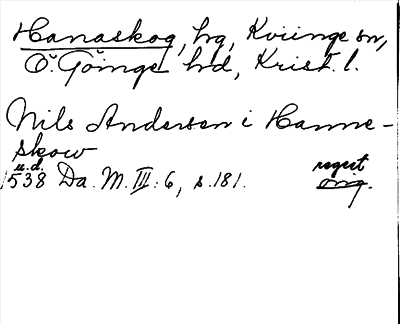 Hanaskog, hg, Kviinge sn,
Ö. Göinge hd, Krist. l.
Nils Andersen i Hanne-
skow
u.d. regest
1538 Da. M. III: 6, s. 181. orig.